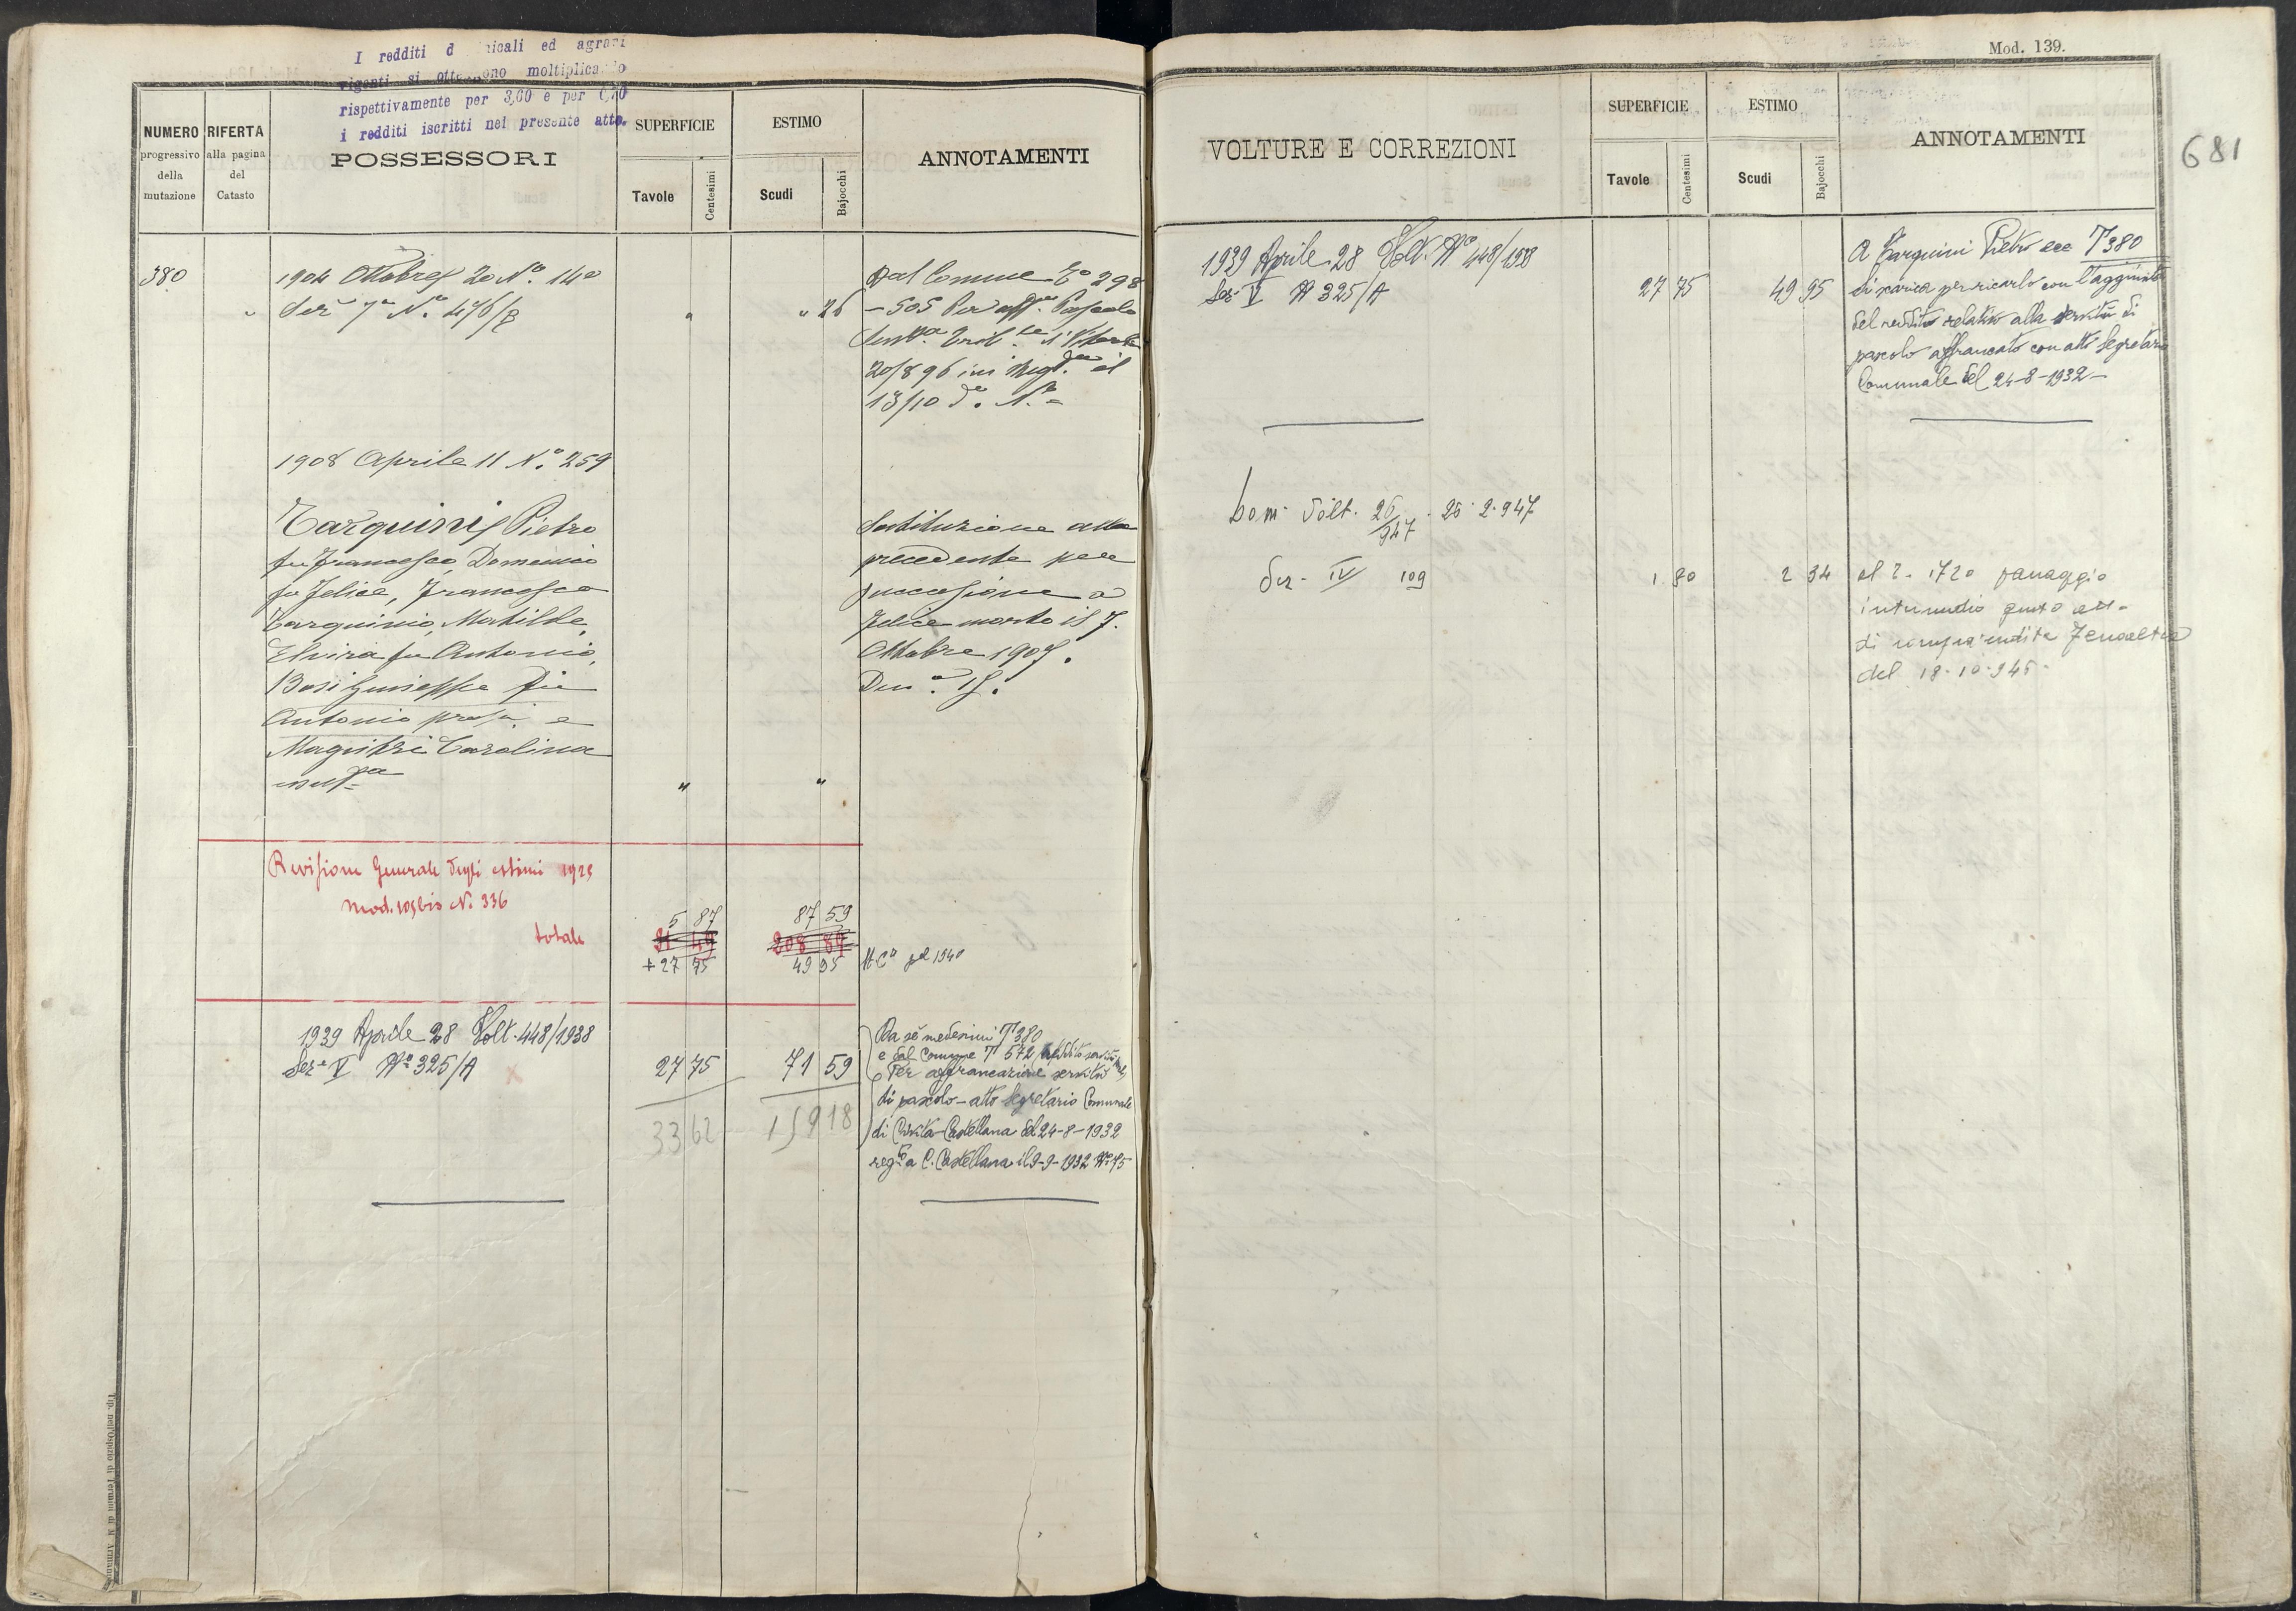 I redditi d nicali ed agrari
vigenti si otte ono moltiplicando
rispettivamente per 3,60 e per 0,70
i redditi iscritti nel presente atto.
NUMERO
progressivo
della
mutazione
RIFERTA
alla pagina
del
Catasto
POSSESSORI
SUPERFICIE
Tavole
Centesimi
ESTIMO
Scudi
Bajocchi
ANNOTAMENTI
380
1904 Ottobre 20 N.º 140
Ser 7ª N.º 476/B
" " 26
Dal Comune Tº 298
- 505 Per aff.ne Pascolo
Sent.za Trib.le di Viterbo
20/8 96 ivi Regt. il
13/10 dº. N.º =
1908 Aprile 11 N.º 259
Tarquini Pietro
fu Francesco, Domenico
fu Felice, Francesco
Tarquinio, Matilde,
Elvira fu Antonio,
Bosi Giuseppe fu
Antonio e
Magistri Carolina
" "
Sostituzione alla
precedente per
successione a
Felice morto il 7.
Ottobre 1907.
Den.ª 15.
Revisione Generale degli estimi 1925
Mod. 105 bis N. 336
totale
5 87 87 59
31 49 208 89
+27 75 49 95
1940
1939 Aprile 28 Volt. 448/1938
Ser-e V Nº 325/A
27 75 71 59
33 62 159 18
Da sè medesimi T 380
e dal Comune T 572
Per affrancazione servitù
di pascolo - atto Segretario Comunale
di Civita Castellana del 24-8-1932
reg.to a C. Castellana il 9-9-1932 Nº 75
Tip. nell'Ospizio di Termini di N. Armanni
Mod. 139.
681
VOLTURE E CORREZIONI
SUPERFICIE
Tavole
Centesimi
ESTIMO
Scudi
Bajocchi
ANNOTAMENTI
1939 Aprile 28 Volt. Nº 448/1938
Ser-e V Nº 325/A
27 75 49 95
A Tarquini Pietro ecc T 380
Si scarica per ricarlo con l'aggiunta
del reddito relativo alla servitù di
pascolo affrancato con atto Segretario
Comunale del 24-8-1932 -
Dom. Volt. 26/947 . 26.2.947
Ser - IV 109
1 80 2 34
al 1720 passaggio
intermedio giusto atto
di compra vendita
del 18-10-945-